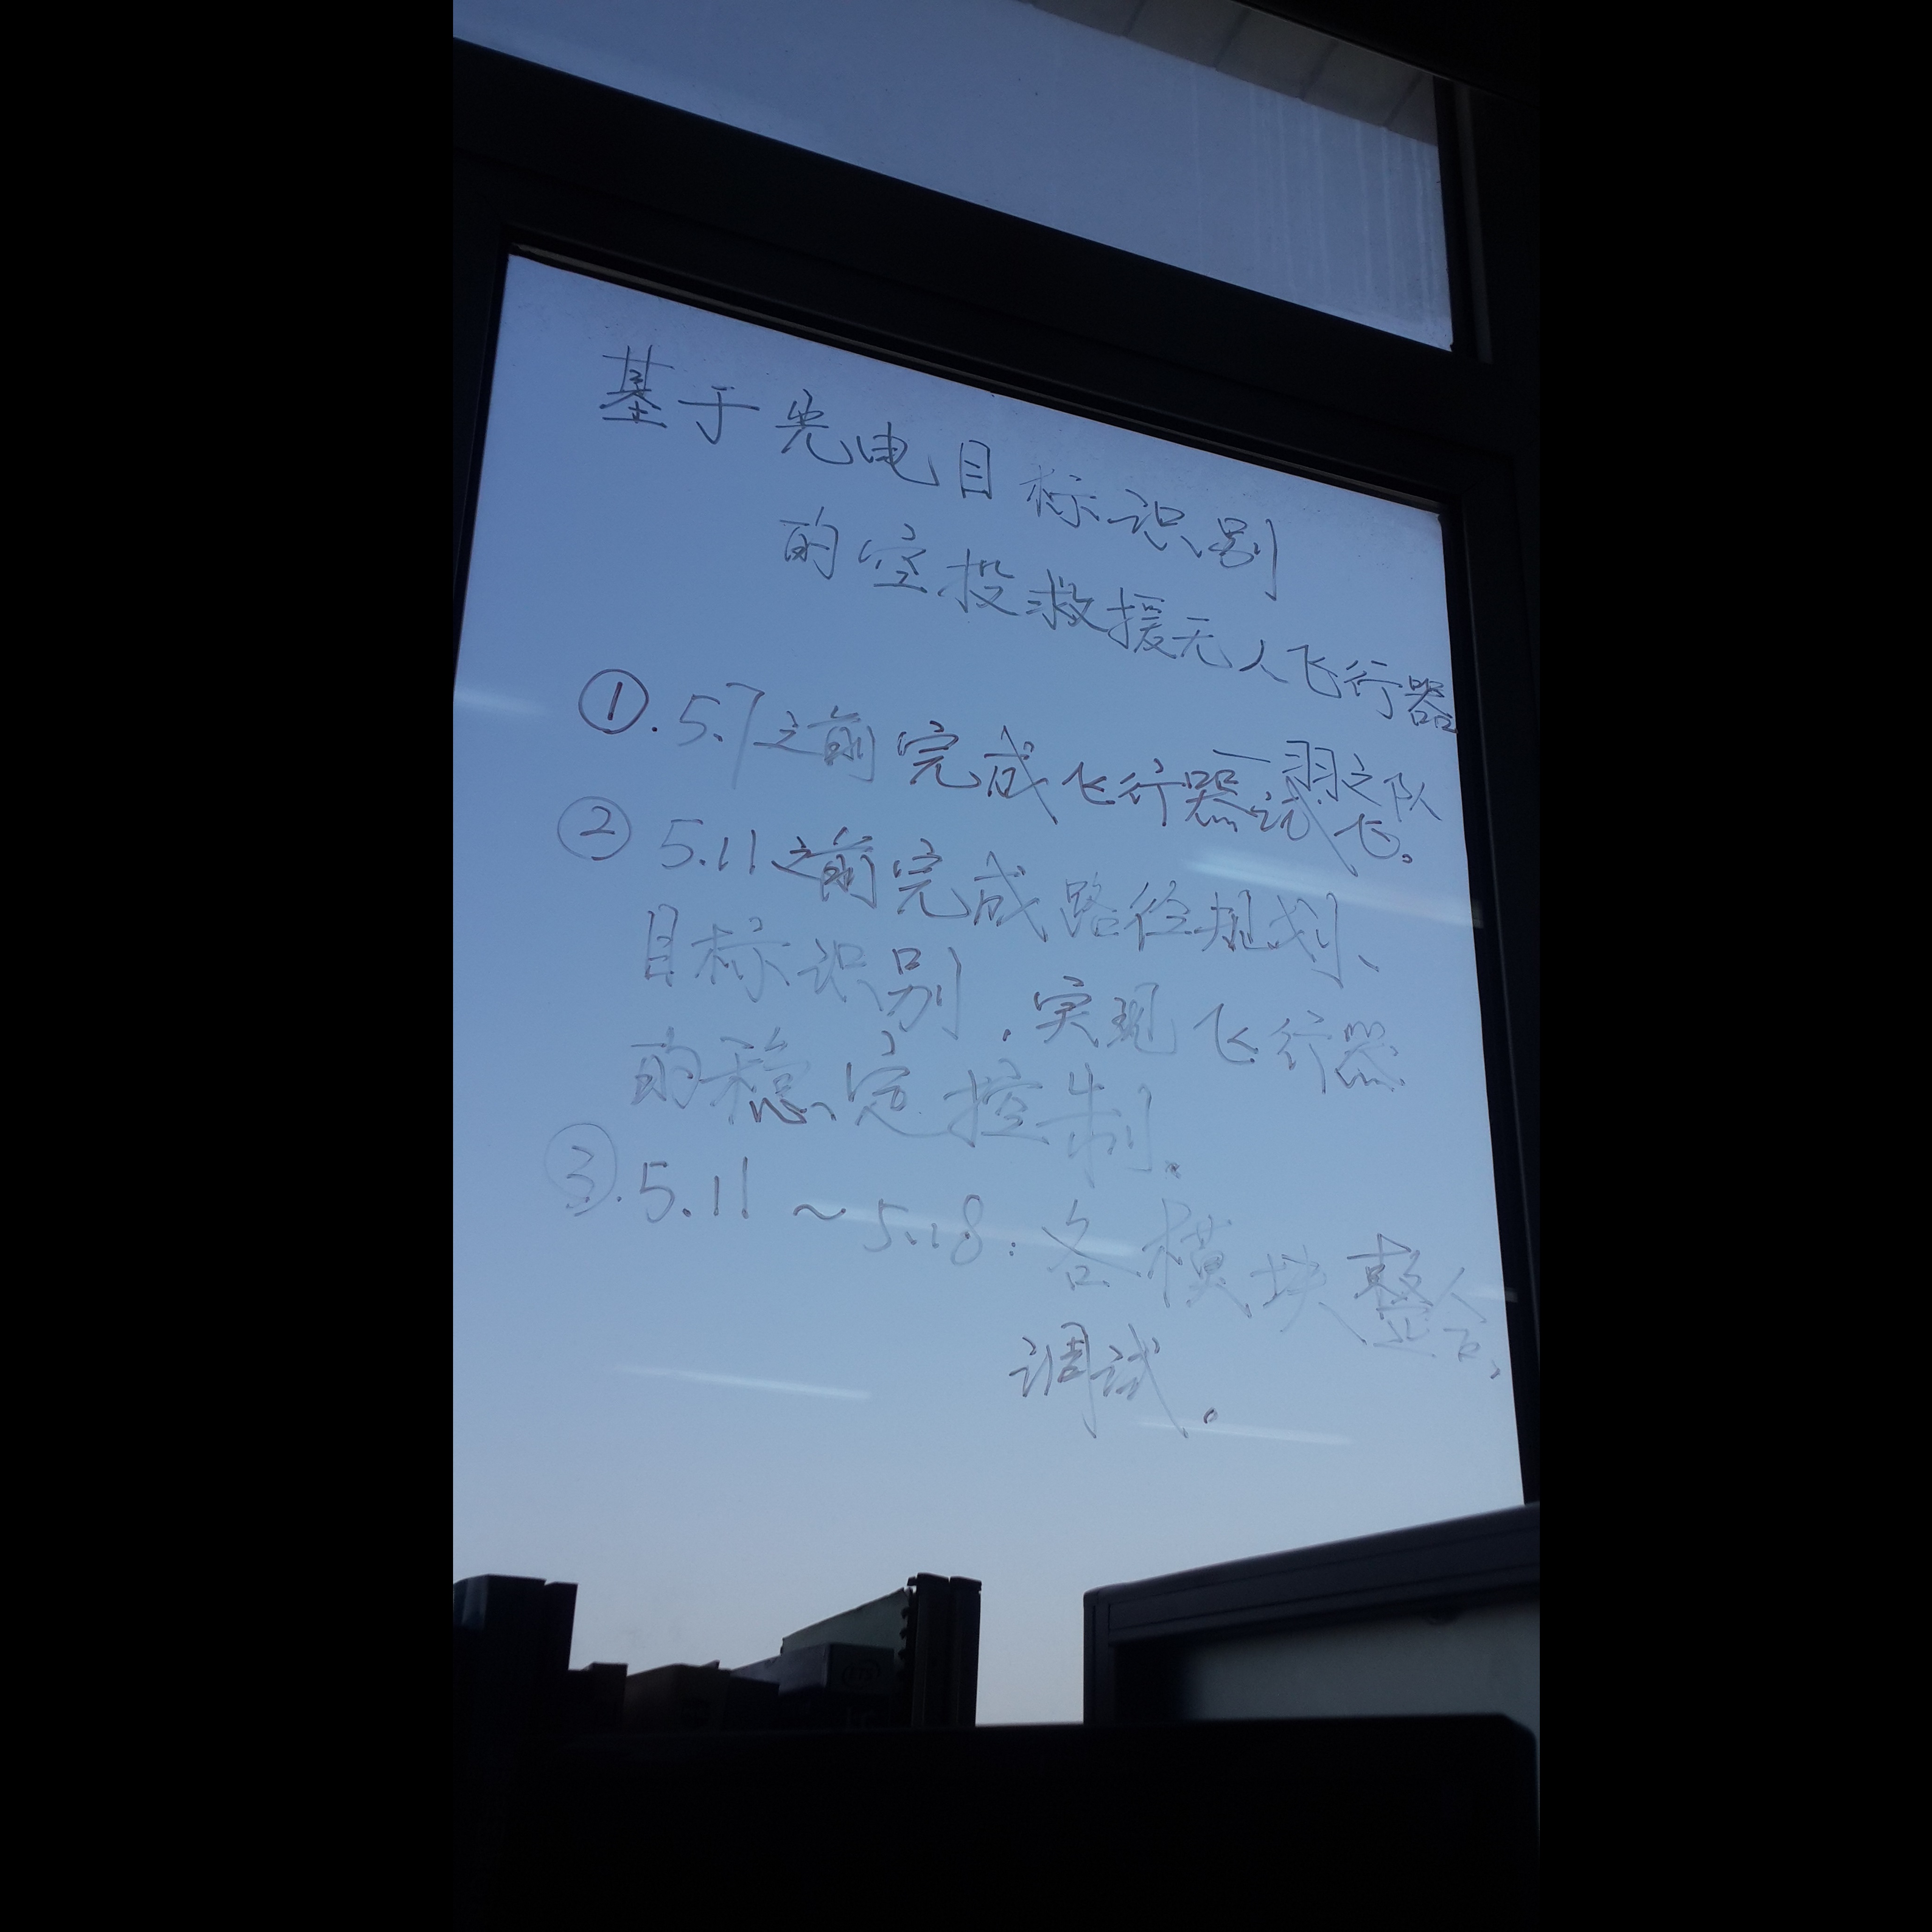 基于光电目标识别
的空投救援无人飞行器
一羽之队
①.5.7之前完成飞行器试飞。
② 5.11之前完成路径规划、
目标识别.实现飞行器
的稳定控制.
③.5.11～5.18:各模块整合、
调试。